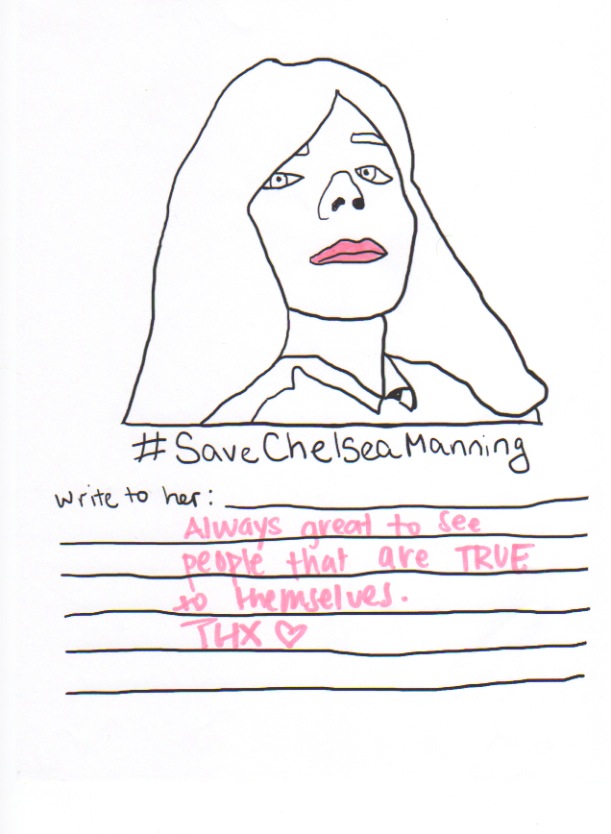 #SaveChelseaManning
write to her:
Always great to see
people that are TRUE
to themselves.
THX ♡